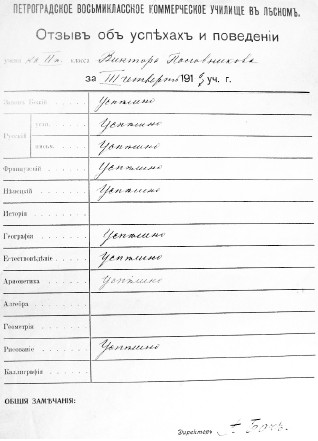 ПЕТРОГРАДСКОЕ ВОСЬМИКЛАССНОЕ КОММЕРЧЕСКОЕ УЧИЛИЩЕ ВЪ ЛѢСНОМЪ.
Отзывъ объ успѣхахъ и поведеніи
класса Виктора Поповникова
за III четверть 191 уч. г.
Законъ Божій Успѣшно
Русскій устн. Успѣшно
письм. Успѣшно
Французскій Успѣшно
Нѣмецкій Успѣшно
Исторія
Географія Успѣшно
Естествовѣдѣніе Успѣшно
Ариѳметика Успѣшно
Алгебра
Геометрія
Рисованіе Успѣшно
Каллиграфія
ОБЩІЯ ЗАМѢЧАНІЯ:
Директоръ